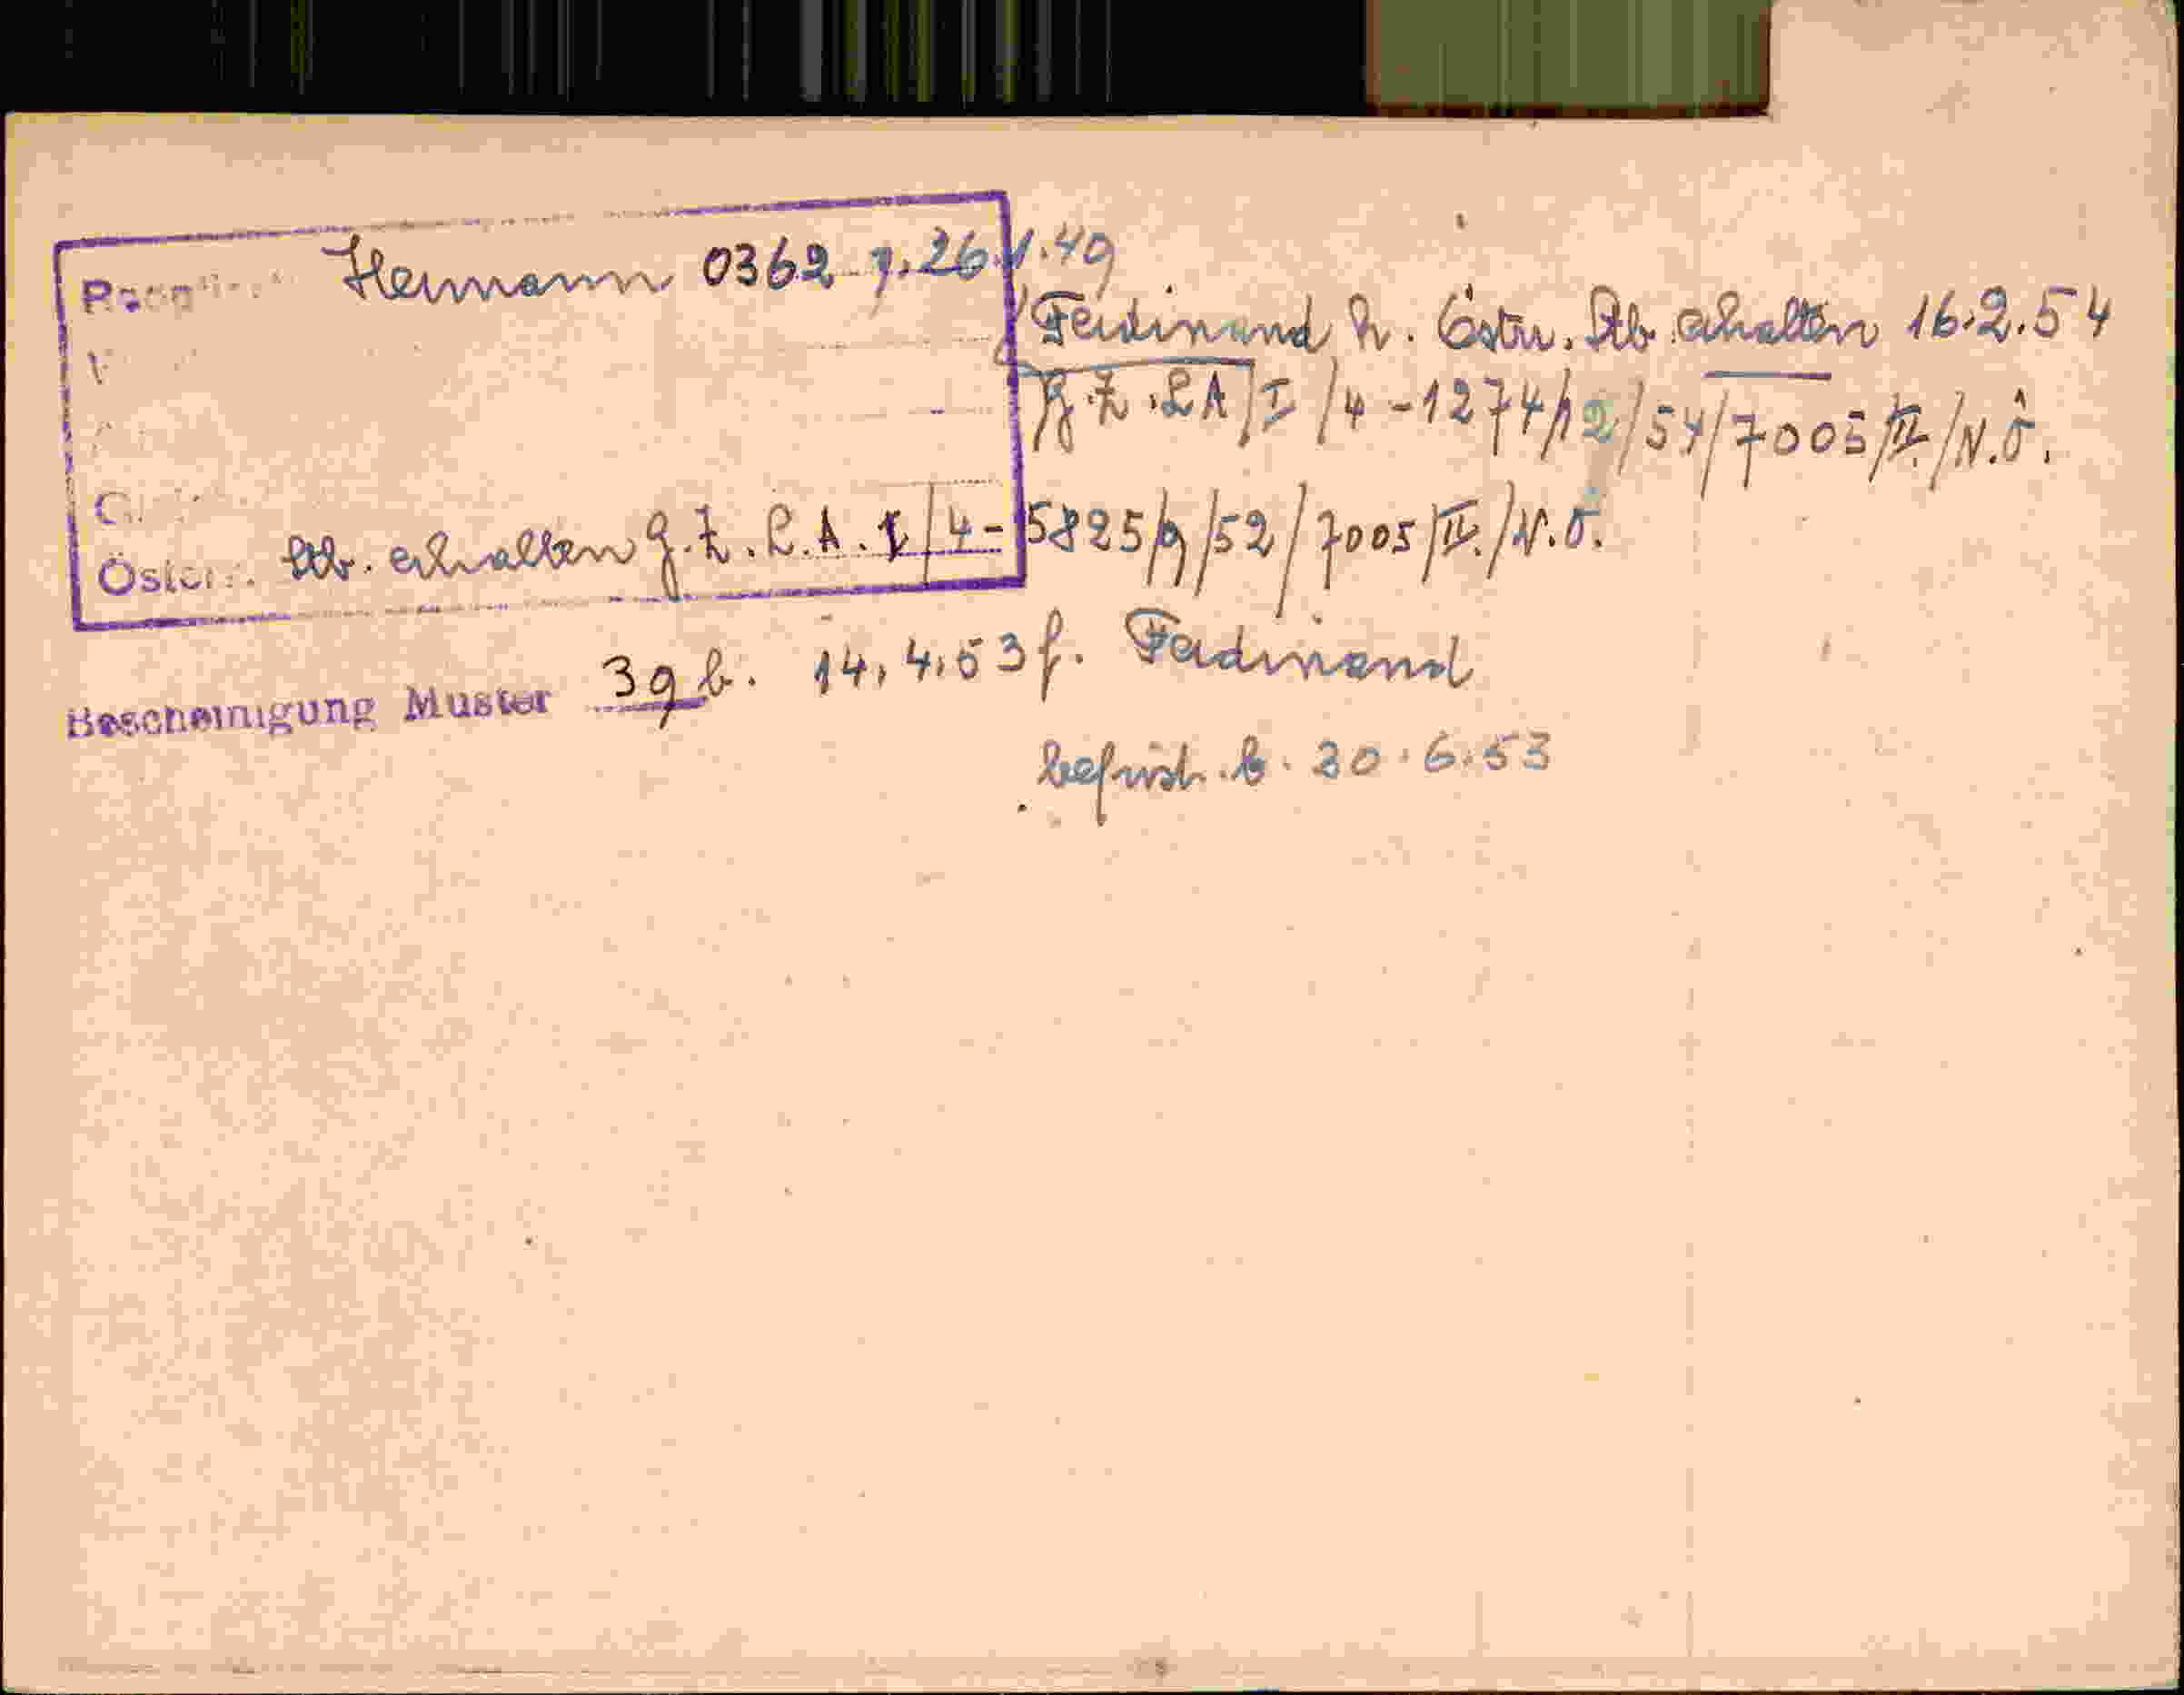 Hermann 0362 g. 26.1.49
Ferdinand h. Östr. Stb. erhalten 16.2.54
g. Z. LA/I/4-1274/12/54/7005/II./N.Ö.
Österr. Stb. erhalten g. Z. L.A. I/4-5825/9/52/7005/II./N.Ö.
Bescheinigung Muster 3g b. 14.4.53 f. Ferdinand
befrist. b. 30.6.53